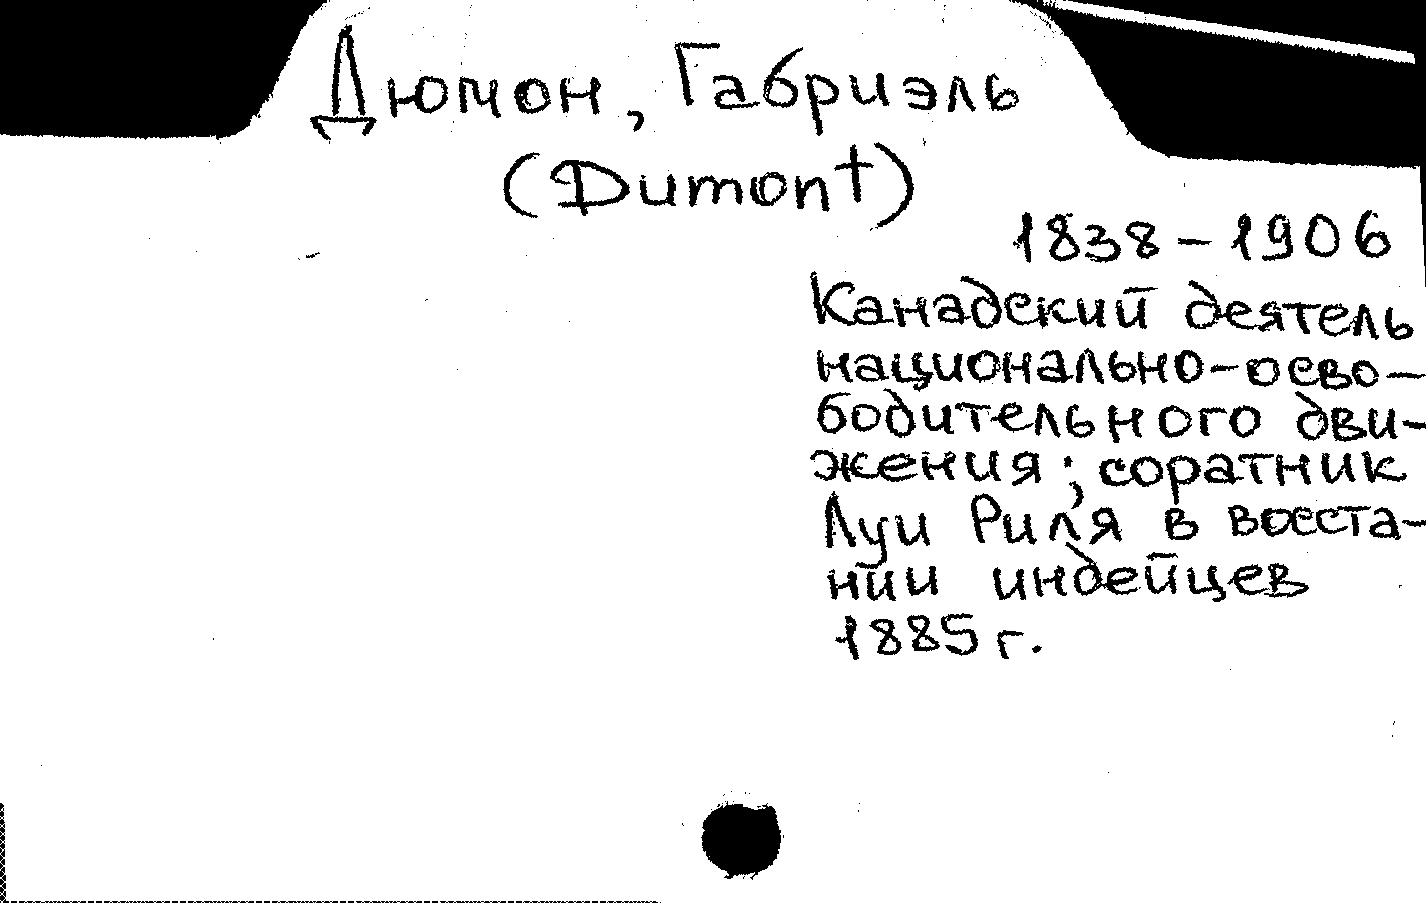 Дюмон, Габриэль
(Dumont)
1838 – 1906
Канадский деятель
национально-осво-
бодительного дви-
жения; соратник
Луи Риля в восста-
нии индейцев
1885 г.